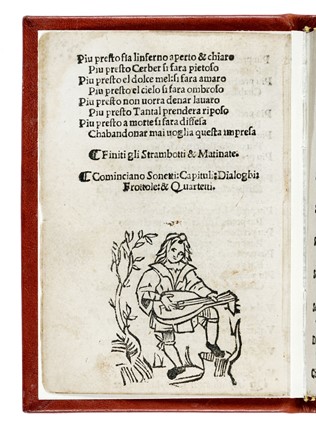 Piu presto fia linferno aperto & chiaro
Piu presto Cerber si fara pietoso
Piu presto el dolce mel:si fara amaro
Piu presto el cielo si fara ombroso
Piu presto non uorra denar lauaro
Piu presto Tantal prendera riposo
Piu presto a morte si fara diffesa
Chabandonar mai uoglia questa impresa
¶ Finiti gli Strambotti & Matinate.
¶ Cominciano Sonetti:Capituli:Dialoghi:
Frottole:& Quartetti.